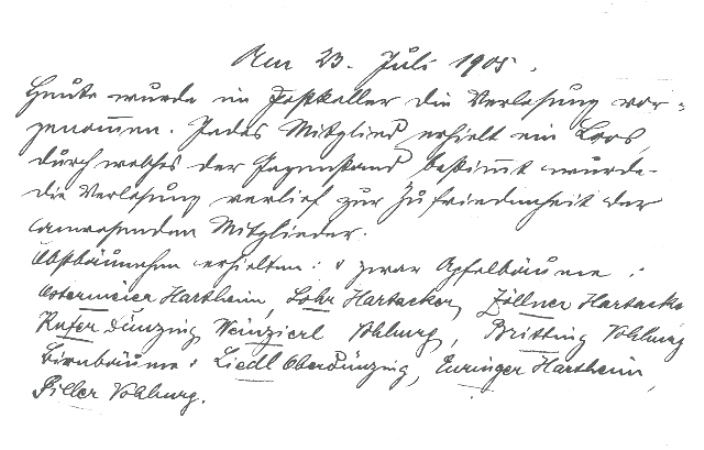 Am 23. Juli 1905.
Heute wurde im Postkeller die Verlosung vor-
genommen. Jedes Mitglied erhielt ein Loos,
durch welches der Gegenstand bestimmt wurde.
Die Verlosung verlief zur Zufriedenheit der
anwesenden Mitglieder.
Obstbäumchen erhielten: u zwar Apfelbäume:
Ostermeier Hartheim, Lohr Hartacker, Zöllner Hartacke
Rufer Dünzing Weinzierl Vohburg, Britting Vohburg
Birnbäume: Liedl Oberdünzing, Euringer Hartheim,
Piller Vohburg.